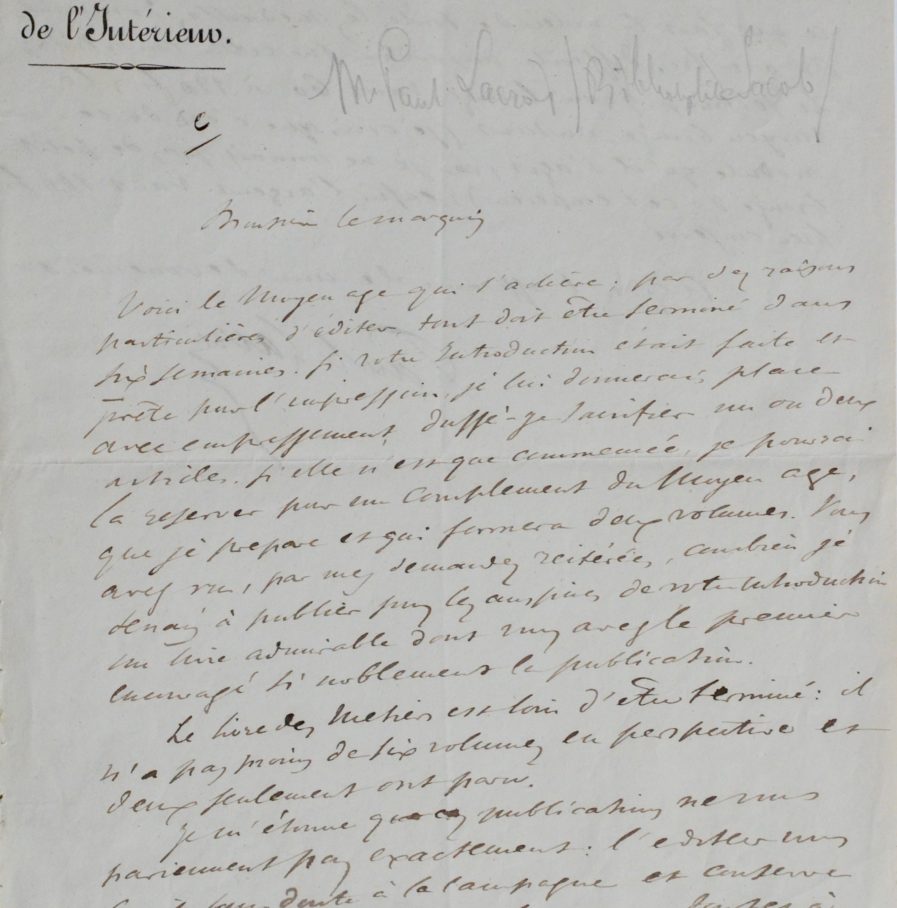 de l'Intérieur.
M. Paul Lacroix (Bibliophile Jacob)
Monsieur le marquis
Voici le Moyen age qui s'achève ; par des raisons
particulières d'éditeur tout doit être terminé dans
six semaines. Si votre Introduction était faite et
prête pour l'impression, je lui donnerais place
avec empressement, dussé-je sacrifier un ou deux
articles. Si elle n'est que commencée, je pourrai
la reserver pour un complement du Moyen age,
que je prepare et qui formera deux volumes. Vous
avez vu, par mes demandes réitérées, combien je
tenais à publier sous les auspices de votre introduction
un livre admirable dont vous avez le premier
encouragé si noblement la publication.
Le livre des Métiers est loin d'être terminé : il
n'a pas moins de six volumes en perspective et
deux seulement ont paru.
Je m'étonne que ces publications ne vous
parviennent pas exactement : l'editeur vous
à la campagne et conserve